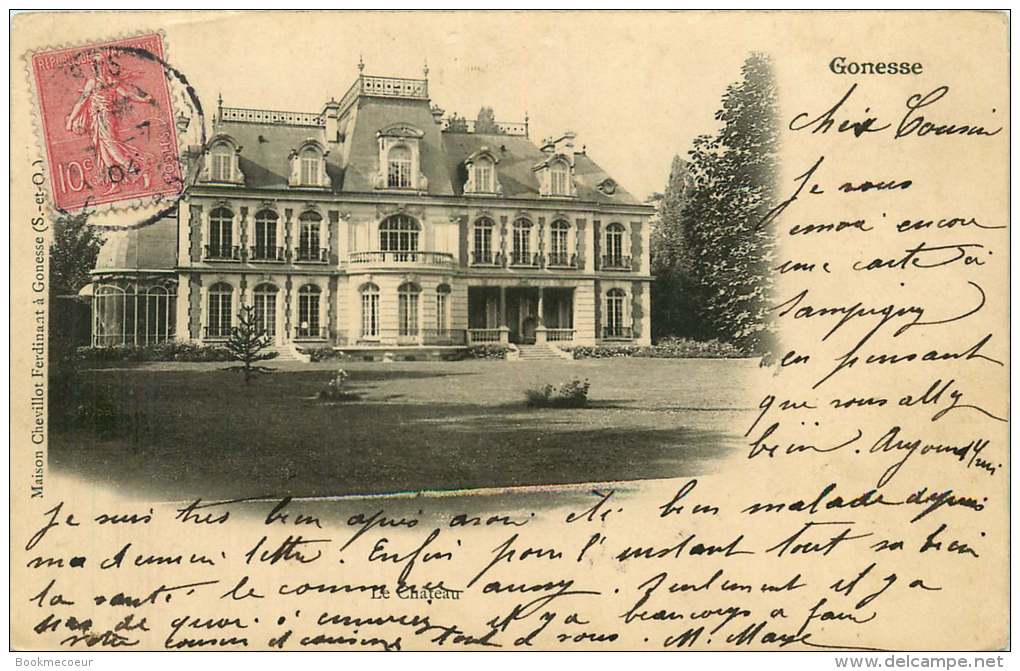 Gonesse
RÉPUBLIQUE FRANÇAISE
10c
04
Maison Chevillot Ferdinand à Gonesse (S.-et-O.)
cher Cousin
Je vous
envoi encore
une carte à
Sampigny
en pensant
que vous allez
bien. Aujourd'hui
Je suis très bien après avoir été bien malade depuis
ma dernière lettre. Enfin pour l'instant tout va bien
la santé le commerce aussy. Seulement il y a
pas de quoi s'ennuyer il y a beaucoup a faire
Le Château
votre cousin et cousine tout a vous. M. Maye
Bookmecoeur
delcampe.net